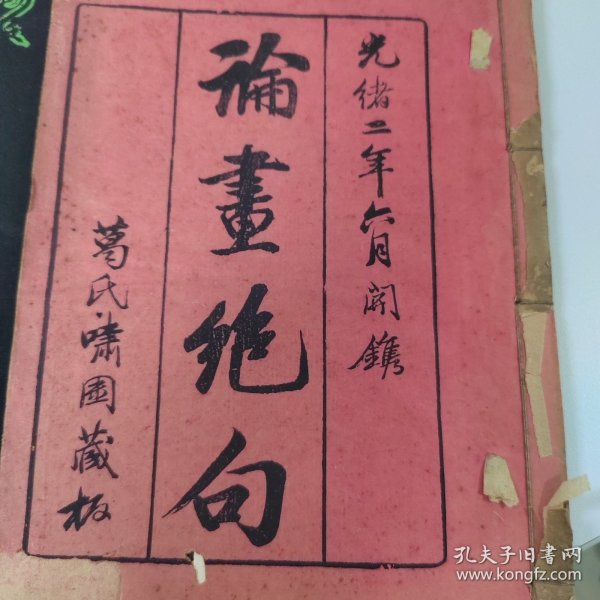 光緒二年六月開鐫
論畫絶句
葛氏嘯園藏板
孔夫子旧书网
www.kongfz.com